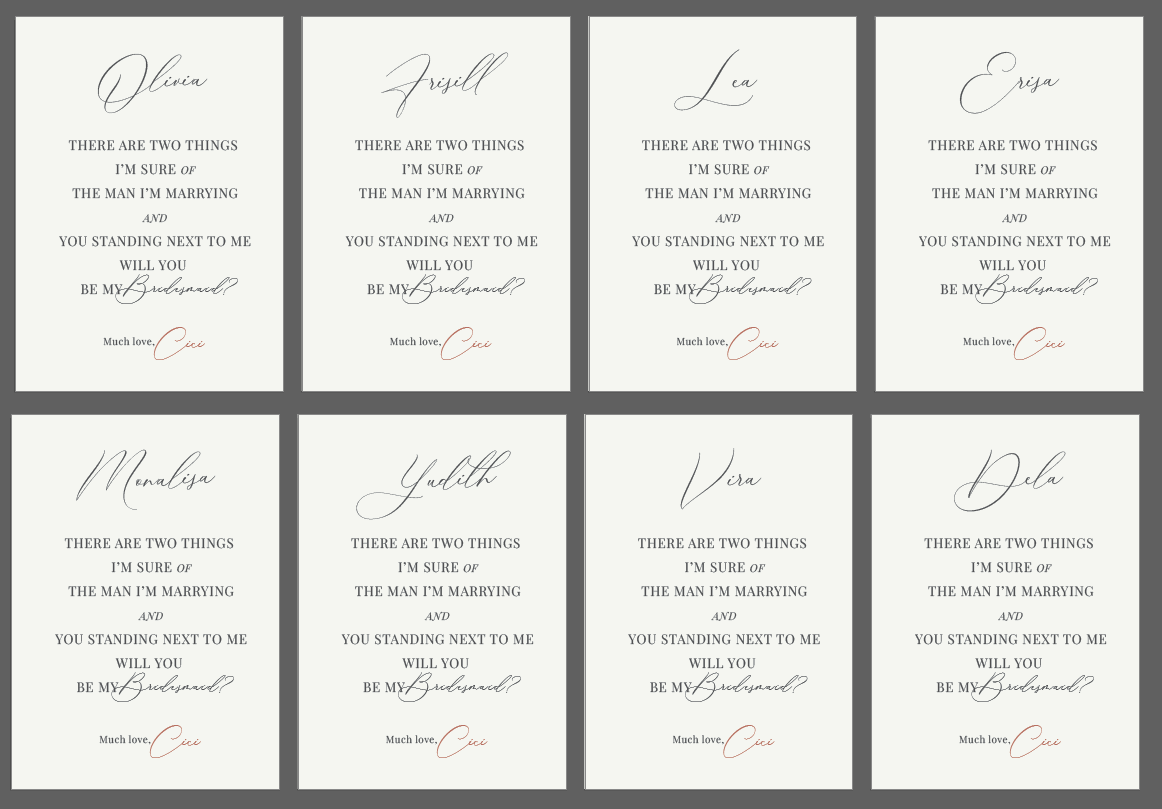 Olivia
THERE ARE TWO THINGS
I'M SURE OF
THE MAN I'M MARRYING
AND
YOU STANDING NEXT TO ME
WILL YOU
BE MY Bridesmaid?
Much love, Cici
Frisill
THERE ARE TWO THINGS
I'M SURE OF
THE MAN I'M MARRYING
AND
YOU STANDING NEXT TO ME
WILL YOU
BE MY Bridesmaid?
Much love, Cici
Lea
THERE ARE TWO THINGS
I'M SURE OF
THE MAN I'M MARRYING
AND
YOU STANDING NEXT TO ME
WILL YOU
BE MY Bridesmaid?
Much love, Cici
Erisa
THERE ARE TWO THINGS
I'M SURE OF
THE MAN I'M MARRYING
AND
YOU STANDING NEXT TO ME
WILL YOU
BE MY Bridesmaid?
Much love, Cici
Monalisa
THERE ARE TWO THINGS
I'M SURE OF
THE MAN I'M MARRYING
AND
YOU STANDING NEXT TO ME
WILL YOU
BE MY Bridesmaid?
Much love, Cici
Yudith
THERE ARE TWO THINGS
I'M SURE OF
THE MAN I'M MARRYING
AND
YOU STANDING NEXT TO ME
WILL YOU
BE MY Bridesmaid?
Much love, Cici
Vira
THERE ARE TWO THINGS
I'M SURE OF
THE MAN I'M MARRYING
AND
YOU STANDING NEXT TO ME
WILL YOU
BE MY Bridesmaid?
Much love, Cici
Dela
THERE ARE TWO THINGS
I'M SURE OF
THE MAN I'M MARRYING
AND
YOU STANDING NEXT TO ME
WILL YOU
BE MY Bridesmaid?
Much love, Cici